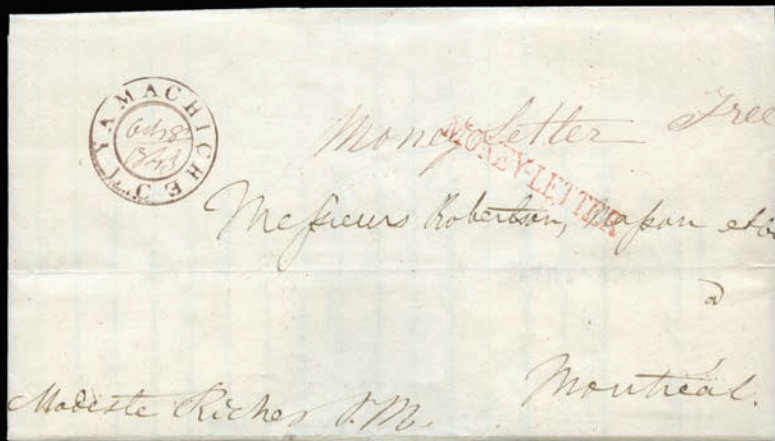 YAMACHICHE
Oct 8
Money Letter Free
MONEY-LETTER
Messieurs Robertson, Masson et Co
à
Montréal.
Modeste Richer P.M.